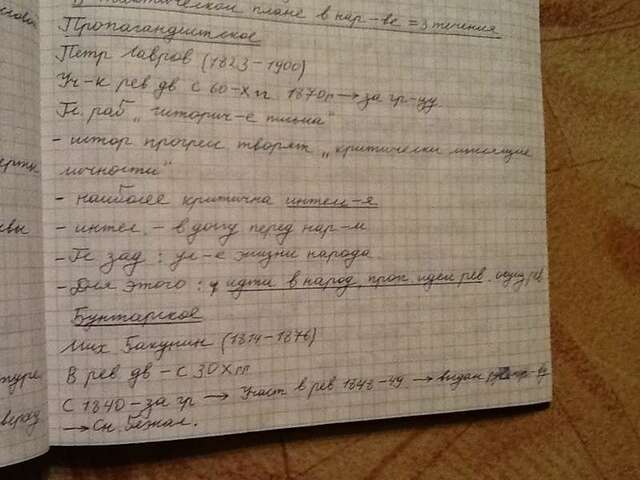 В политическом плане в нар-ве = 3 течения
Пропагандистское
Петр Лавров (1823-1900)
Уч-к рев. дв. с 60-х гг. 1870г → за гр-цу.
Гл. раб „историч-е письма"
- истор прогресс творят „критически мыслящие
личности"
- наиболее критична интел-я
- интел. - в долгу перед нар-м
- Гл зад: ул-е жизни народа
- Для этого: идти в народ, проп. идеи рев.
Бунтарское
Мих. Бакунин (1814-1876)
В рев. дв - с 30х гг
С 1840 - за гр → Участ в рев 1848-49 → выдан
→ Сн. бежал.